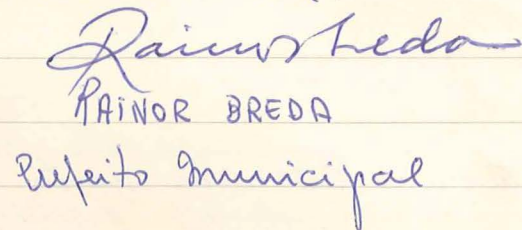 Rainor Breda
RAINOR BREDA
Prefeito Municipal